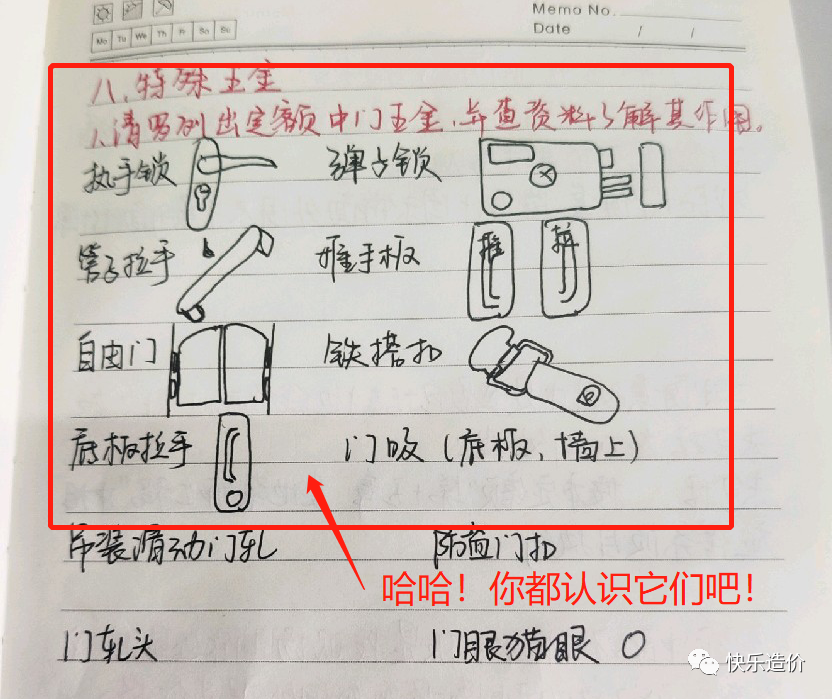 Memo No.
Mo Tu We Th Fr Sa Su
Date / /
八、特殊五金
1、请罗列出定额中门五金,并查资料了解其作用。
执手锁 弹子锁
管子拉手 推手板 推 拉
自由门 铁搭扣
底板拉手 门吸(底板、墙上)
吊装滑动门轧 防盗门扣
哈哈!你都认识它们吧!
门轧头 门眼猫眼
快乐造价